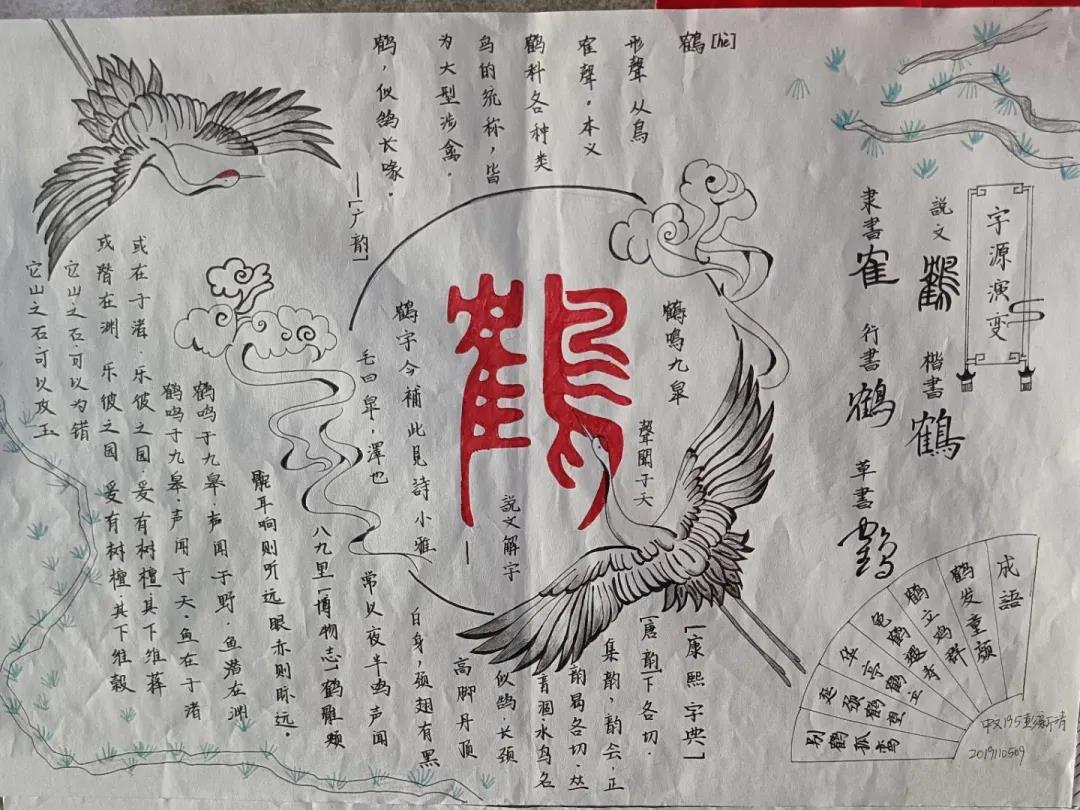 鶴[hè]
形聲 从鳥
隺聲。本义
鹤科各种类
鸟的统称，皆
为大型涉禽。
鹤，似鹄长喙。
—[广韵]
字源演变
説文 鶴
楷書 鶴
隶書 隺
行書 鹤
草書 鶴
鶴
鶴鳴九皋
聲聞于天
説文解字—
鶴字今補此見詩小雅
毛曰皋，澤也
[康熙字典]
[唐韵]下各切.
集韵，韵会.正
韵曷各切.𠀤
音涸水鸟名
似鹄.长颈
高脚丹顶
白身，颈翅有黑
常以夜半鸣声闻
八九里[博物志]鹤雌颊
聪耳响则听远 眼赤则眎远。
鹤鸣于九皋.声闻于野.鱼潜在渊
或在于渚.乐彼之园.爰有树檀.其下维萚
它山之石.可以为错
鹤鸣于九皋.声闻于天.鱼在于渚
或潜在渊 乐彼之园 爰有树檀.其下维榖
它山之石.可以攻玉
成語
鹤发童颜
鹤立鸡群
龟鹤遐寿
华亭鹤唳
延颈鹤望
别鹤孤鸾
中文195
2019110509